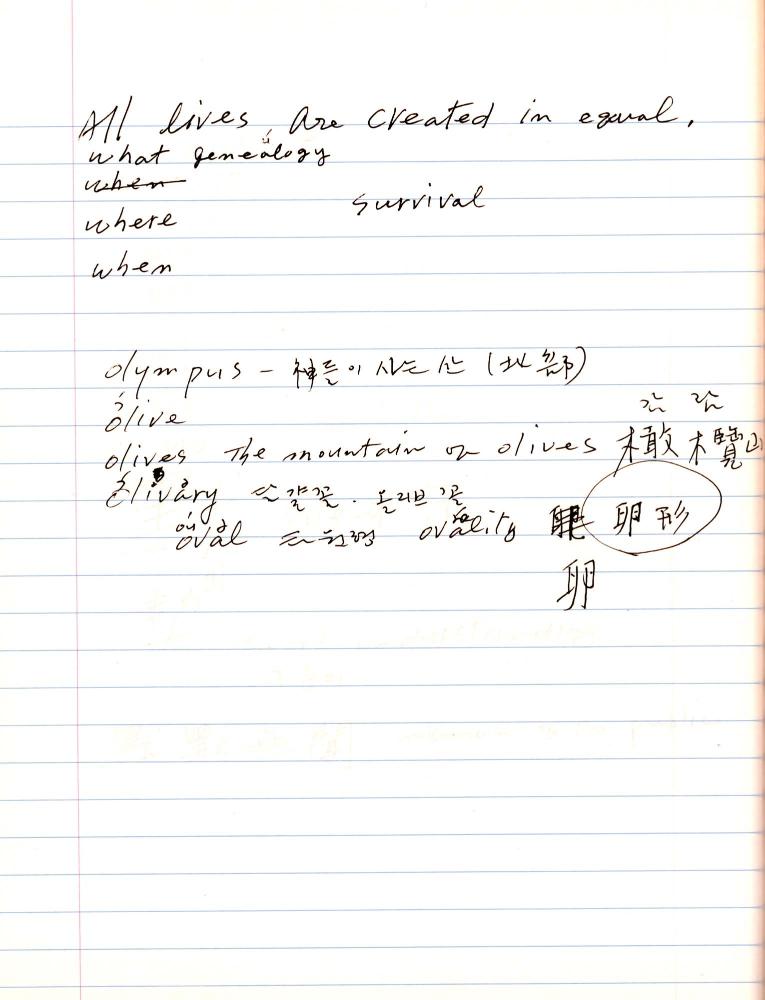 All lives, are created in equal.
what genealogy
when
where survival
when
olympus - 神들이 사는 산 (北部)
olive
감 람
olives The mountain of olives 橄欖山
olivary 달걀꼴. 올리브꼴
oval 타원형 ovality 卵形
卵